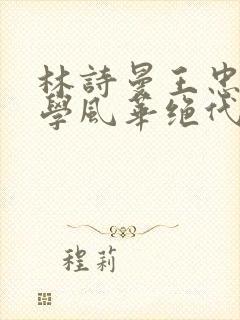 林詩曼王忠
學風華绝代
程莉